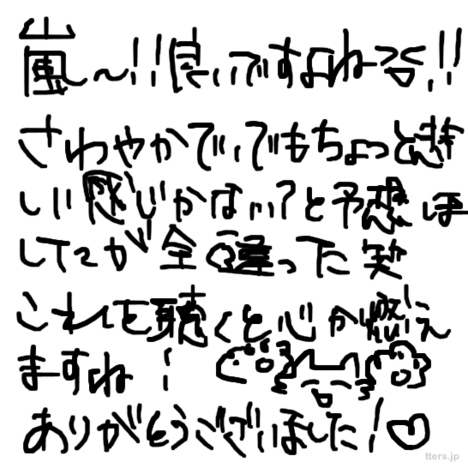 嵐〜!!良いですよねううう!!
さわやかでいてでもちょっと悲
しい感じかない?と予想ほ
してたが全く違った笑
これを聴くと心か燃え
ますね!
ありがとうございました!♡
tters.jp